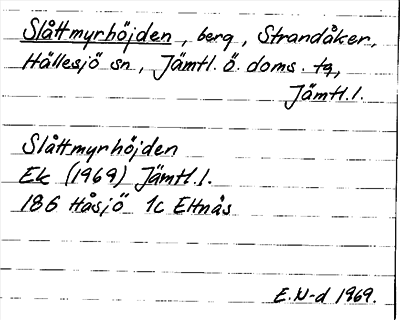 Slåttmyrhöjden, berg, Strandåker,
Hällesjö sn, Jämtl. ö. doms. tg,
Jämtl. l.
Slåttmyrhöjden
Ek (1969) Jämtl. l.
186 Håsjö 1c Eltnås
E. N-d 1969.